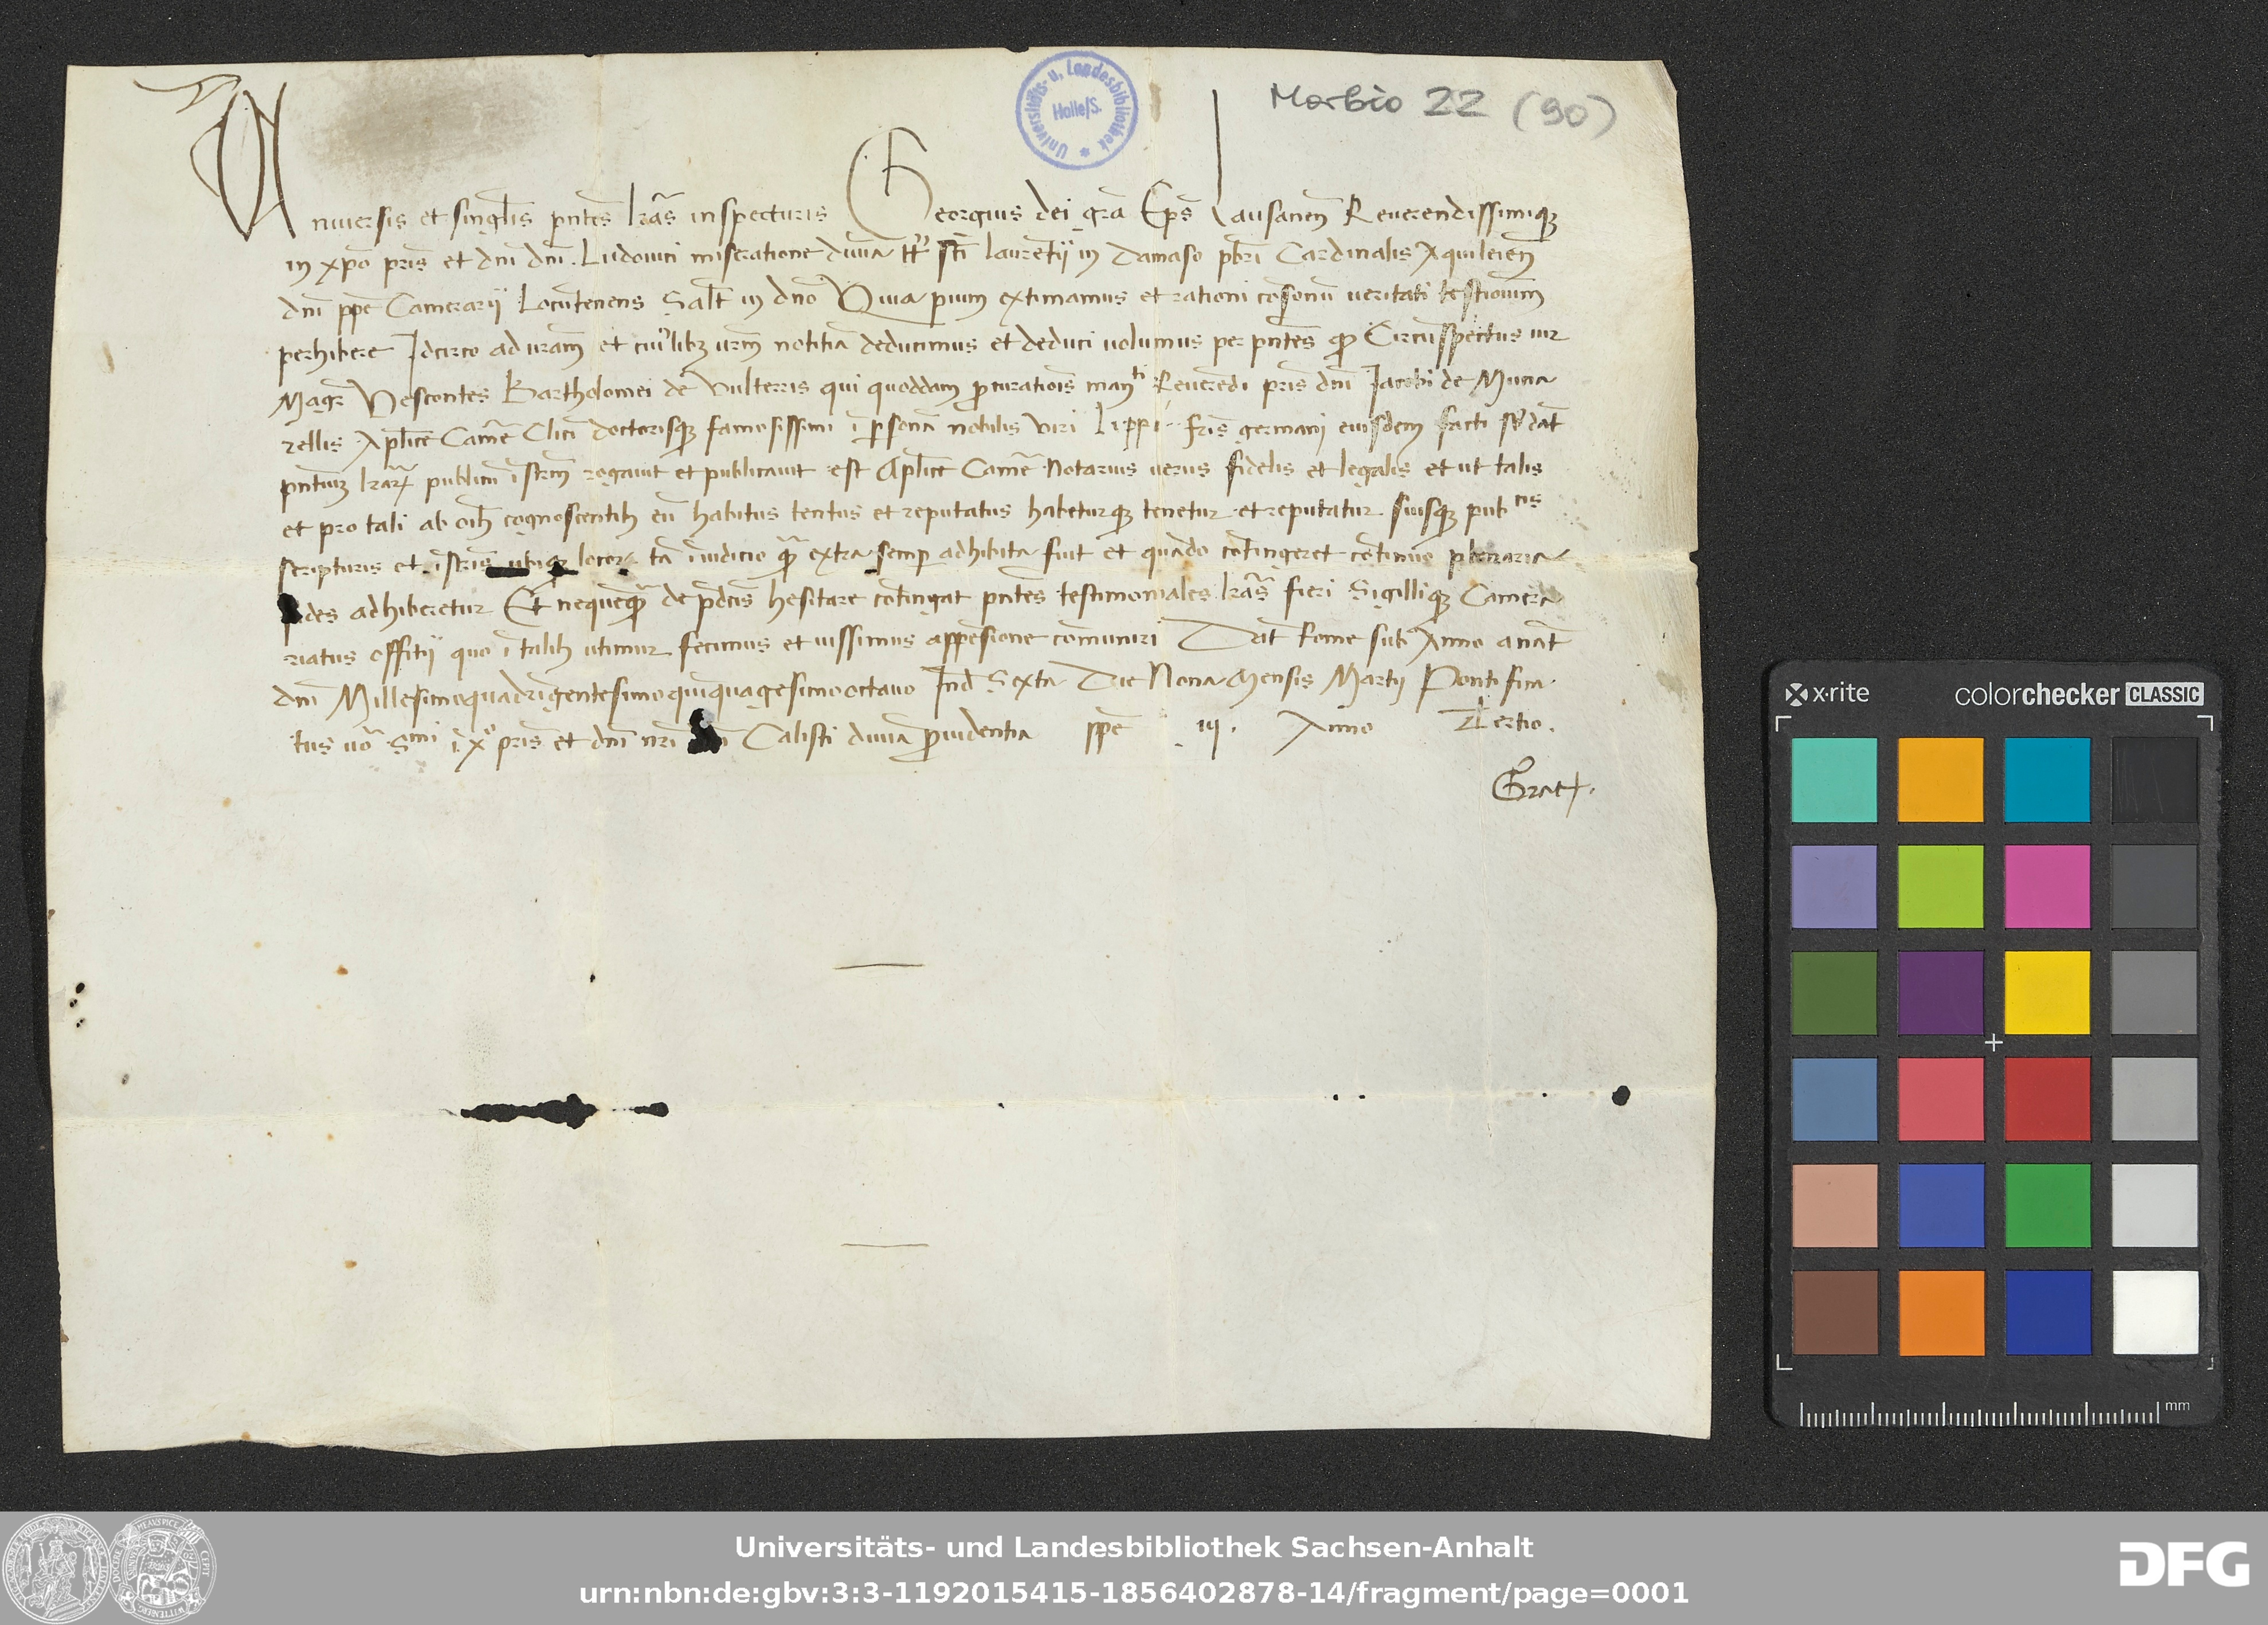 Universitäts- u. Landesbibliothek Halle/S.
Morbio 22 (90)
Vniuersis et singlis pntes lras inspecturis Georgius dei gra Eps Lausanen Reuerendissimiqz
in xpo pris et dni dni Ludouici miseratione diuia tt sti lauretij in Damaso pbri Cardinalis Aquileien
dni ppe Camerarij Locutenens Salt in dno Quia pium extimamus et rationi cosonu ueritati testioium
perhibere Idcirco ad uram et cuiuslibz urm notitia deducimus et deduci uolumus per pntes qd Circuspectus uir
Magr Vescontes Bartholomei de Vulterris qui quoddam procuratiois manti Reueredi pris dni Jacobi de Mucia
rellis Aplice Came Clici doctorisqz famosissimi i psona nobilis viri lippi fris germani eiusdem facti
pntiuz lrar publicu istrm rogauit et publicauit est Aplice Came Notarius uerus fidelis et legalis et ut talis
et pro tali ab oib cognoscentib eu habitus tentus et reputatus habeturqz tenetur et reputatur suisqz pubcis
scripturis et istris ubiqz locor ta iudicio qz extra semp adhibita fuit et quado cotingeret cotinuo plenaria
fides adhiberetur Et ne quequa de pdcis hesitare cotingat pntes testimoniales lras fieri Sigilliqz Camera
riatus offitij quo i talib utimur fecimus et iussimus appesione comuniri Dat Rome sub Anno a nat
dni Millesimoquadrigentesimoquiquagesimooctauo Ind Sexta Die Nona Mensis Martij Pontifica
tus uo Smi i xo pris et dni nri dni Calisti diuia prouidentia ppe iij. Anno Tertio.
x-rite
colorchecker CLASSIC
mm
Universitäts- und Landesbibliothek Sachsen-Anhalt
urn:nbn:de:gbv:3:3-1192015415-1856402878-14/fragment/page=0001
DFG